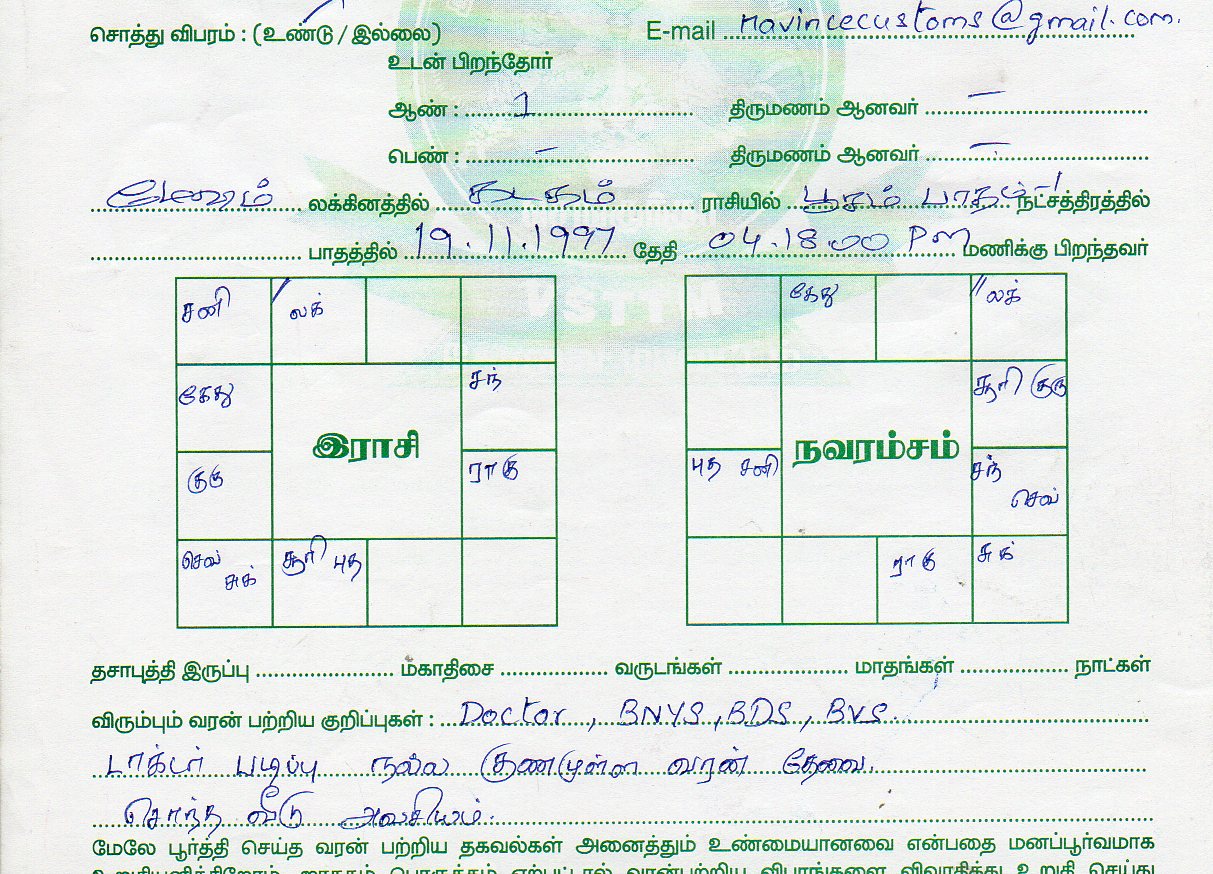 சொத்து விபரம் : (உண்டு / இல்லை) E-mail navincecustoms@gmail.com.
உடன் பிறந்தோர்
ஆண் : 1 திருமணம் ஆனவர் —
பெண் : — திருமணம் ஆனவர் —
மேஷம் லக்கினத்தில் கடகம் ராசியில் பூசம் பாதம் 1 நட்சத்திரத்தில்
பாதத்தில் 19.11.1997 தேதி 04.18.00 Pm மணிக்கு பிறந்தவர்
சனி லக் கேது லக்
கேது சந் சூரி குரு
இராசி நவரம்சம்
குரு ராகு புத சனி சந் செவ்
செவ் சுக் சூரி புத ராகு சுக்
தசாபுத்தி இருப்பு மகாதிசை வருடங்கள் மாதங்கள் நாட்கள்
விரும்பும் வரன் பற்றிய குறிப்புகள் : Doctor, BNYS, BDS, BVS.
டாக்டர் படிப்பு நல்ல குணமுள்ள வரன் தேவை.
சொந்த வீடு அவசியம்.
மேலே பூர்த்தி செய்த வரன் பற்றிய தகவல்கள் அனைத்தும் உண்மையானவை என்பதை மனப்பூர்வமாக